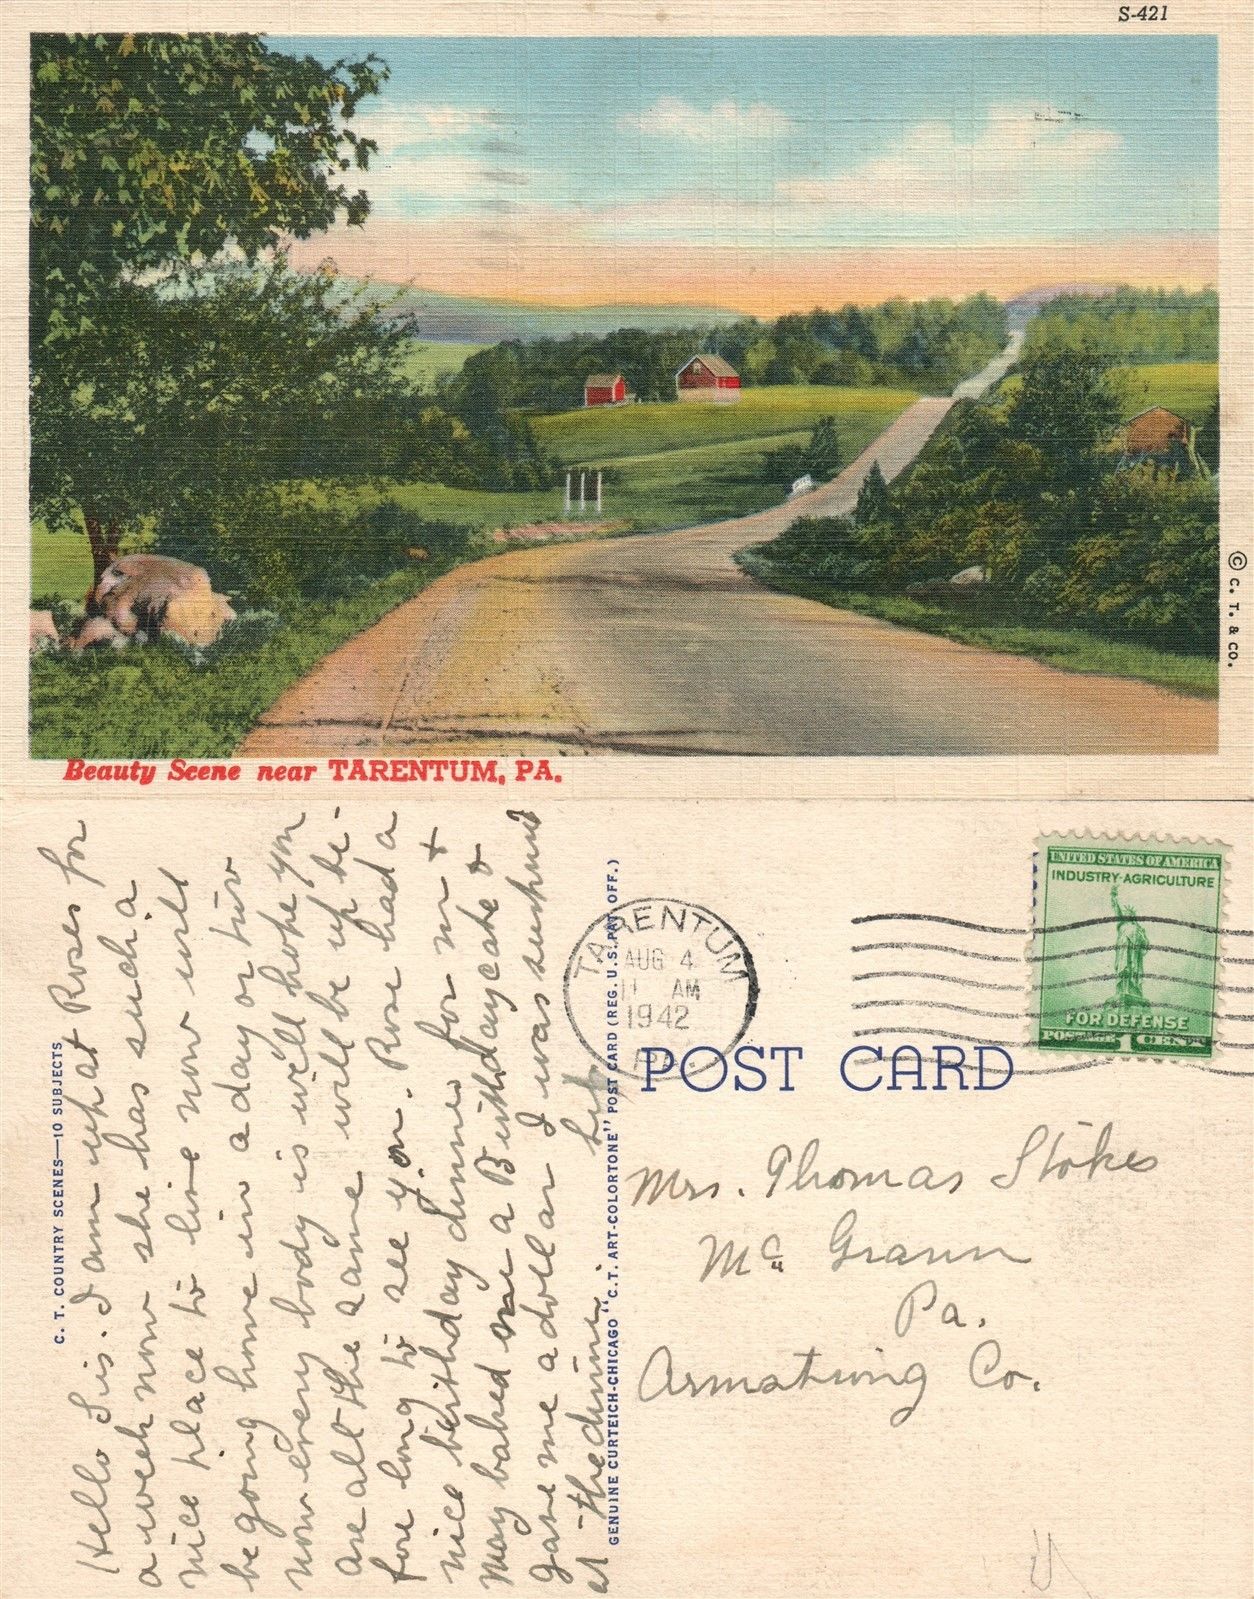 S-421
© C. T. & CO.
Beauty Scene near TARENTUM, PA.
C. T. COUNTRY SCENES—10 SUBJECTS
Hello Sis. I am up at Roses for
a week now she has such a
nice place to live now will
be going home in a day or two
now every body is well hope you
are all the same will be up be-
fore long to see you. Rose had a
nice birthday dinner for me +
May baked me a Birthday cake &
gave me a dollar I was surprised
at the dinner.
GENUINE CURTEICH-CHICAGO "C.T. ART-COLORTONE" POST CARD (REG. U.S. PAT. OFF.)
TARENTUM
AUG 4
11 AM
1942
PA.
UNITED STATES OF AMERICA
INDUSTRY-AGRICULTURE
FOR DEFENSE
POSTAGE 1 CENT
POST CARD
Mrs. Thomas Stokes
Mc Grann
Pa.
Armstrong Co.